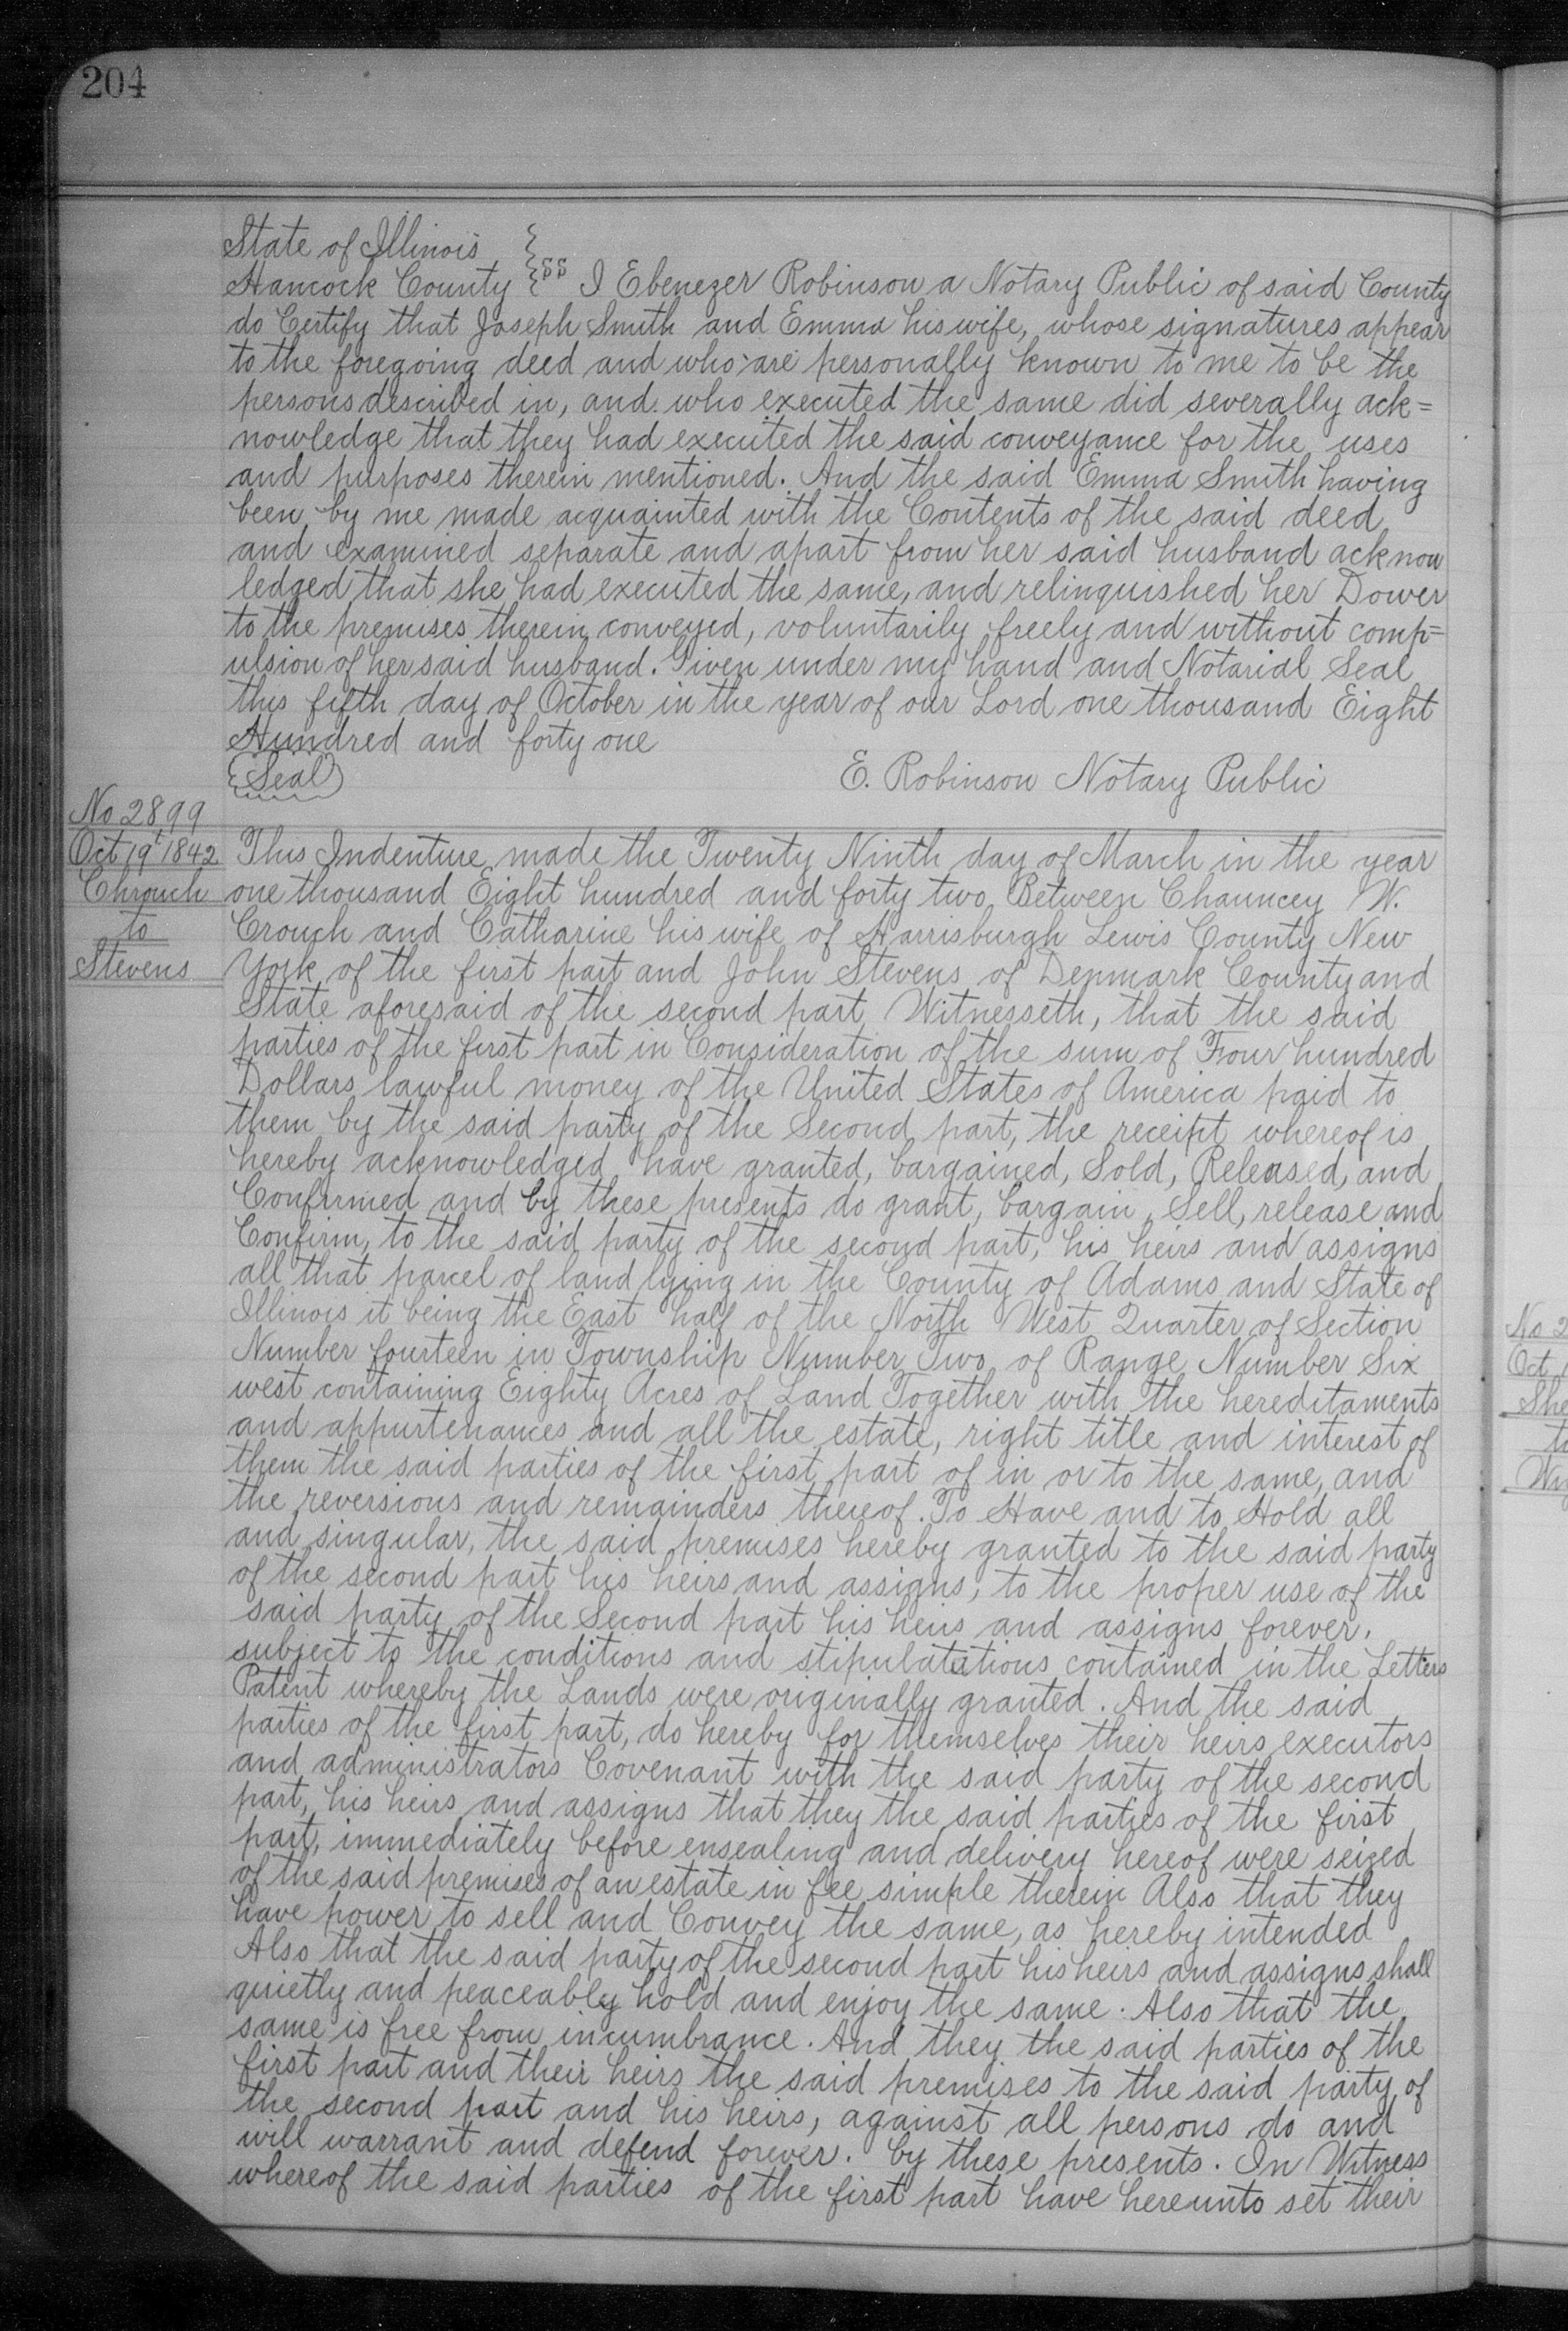 204
State of Illinois }
Hancock County } ss I Ebenezer Robinson a Notary Public of said County
do Certify that Joseph Smith and Emma his wife, whose signatures appear
to the foregoing deed and who are personally known to me to be the
persons described in, and who executed the same did severally ack=
nowledge that they had executed the said conveyance for the uses
and purposes therein mentioned. And the said Emma Smith having
been by me made acquainted with the Contents of the said deed
and examined separate and apart from her said husband acknow
ledged that she had executed the same, and relinquished her Dower
to the premises therein conveyed, voluntarily freely and without comp=
ulsion of her said husband. Given under my hand and Notarial Seal
this fifth day of October in the year of our Lord one thousand Eight
Hundred and forty one
{Seal} E. Robinson Notary Public
No 2899
Oct 19t 1842
Chrouch
to
Stevens
This Indenture made the Twenty Ninth day of March in the year
one thousand Eight hundred and forty two Between Chauncey W.
Crouch and Catharine his wife of Harrisburgh Lewis County New
York of the first part and John Stevens of Denmark County and
State aforesaid of the second part Witnesseth, that the said
parties of the first part in Consideration of the sum of Four hundred
Dollars lawful money of the United States of America paid to
them by the said party of the Second part, the receipt whereof is
hereby acknowledged have granted, bargained, Sold, Released, and
Confirmed and by these presents do grant, bargain, Sell, release and
Confirm, to the said party of the second part, his heirs and assigns
all that parcel of land lying in the County of Adams and State of
Illinois it being the East half of the North West Quarter of Section
Number fourteen in Township Number Two of Range Number Six
west containing Eighty Acres of Land Together with the hereditaments
and appurtenances and all the estate, right title and interest of
them the said parties of the first part of in or to the same, and
the reversions and remainders thereof. To Have and to Hold all
and singular, the said premises hereby granted to the said party
of the second part his heirs and assigns, to the proper use of the
said party of the Second part his heirs and assigns forever.
subject to the conditions and stipulatutions contained in the Letters
Patent whereby the Lands were originally granted. And the said
parties of the first part, do hereby for themselves their heirs executors
and administrators Covenant with the said party of the second
part, his heirs and assigns that they the said parties of the first
part, immediately before ensealing and delivery hereof were seized
of the said premises of an estate in fee simple therein Also that they
have power to sell and Convey the same, as hereby intended
Also that the said party of the second part his heirs and assigns shall
quietly and peaceably hold and enjoy the same. Also that the
same is free from incumbrance. And they the said parties of the
first part and their heirs the said premises to the said party of
the second part and his heirs, against all persons do and
will warrant and defend forever. by these presents. In Witness
whereof the said parties of the first part have hereunto set their
No 2
Oct
She